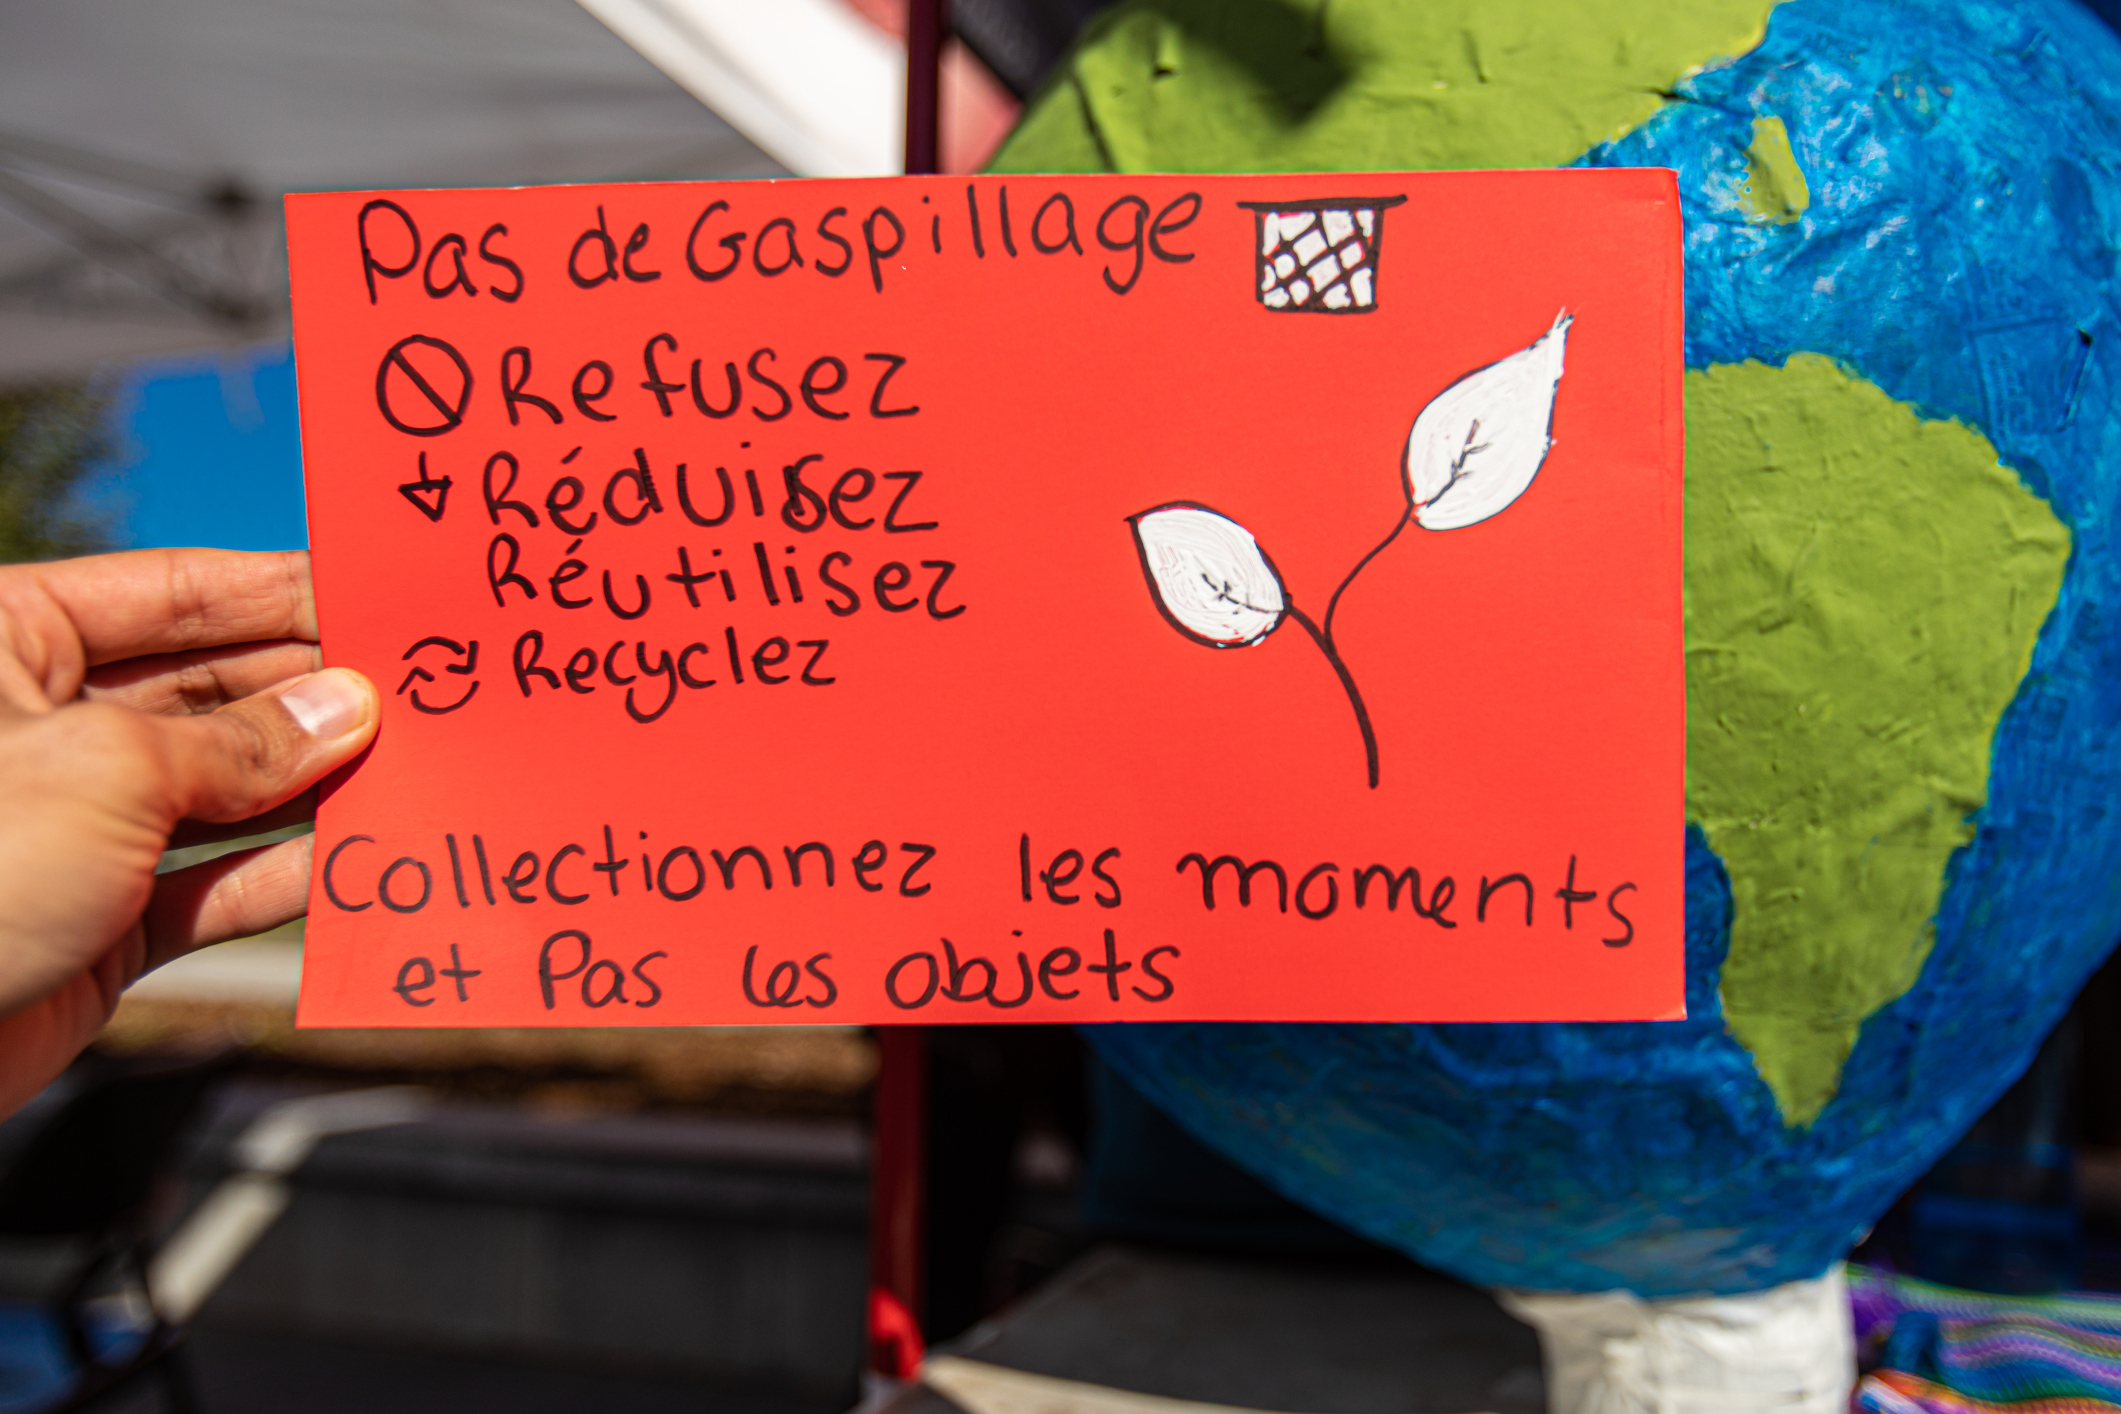 Pas de Gaspillage
Refusez
Réduisez
Réutilisez
Recyclez
Collectionnez les moments
et Pas les objets